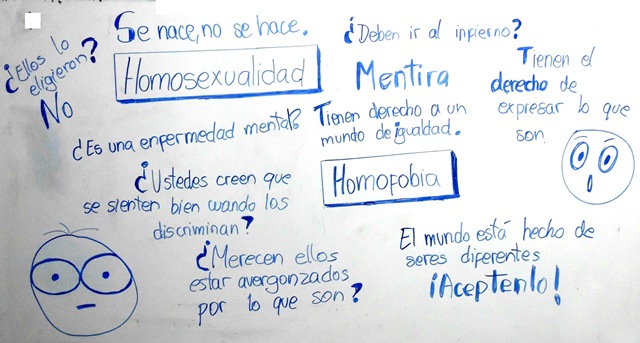 ¿Ellos lo
eligieron?
No
Se nace, no se hace.
Homosexualidad
¿Deben ir al infierno?
Mentira
Tienen el
derecho de
expresar lo que
son.
¿Es una enfermedad mental?
Tienen derecho a un
mundo de igualdad.
¿Ustedes creen que
se sienten bien cuando los
discriminan?
Homofobia
¿Merecen ellos
estar avergonzados
por lo que son?
El mundo está hecho de
seres diferentes
¡Aceptenlo!